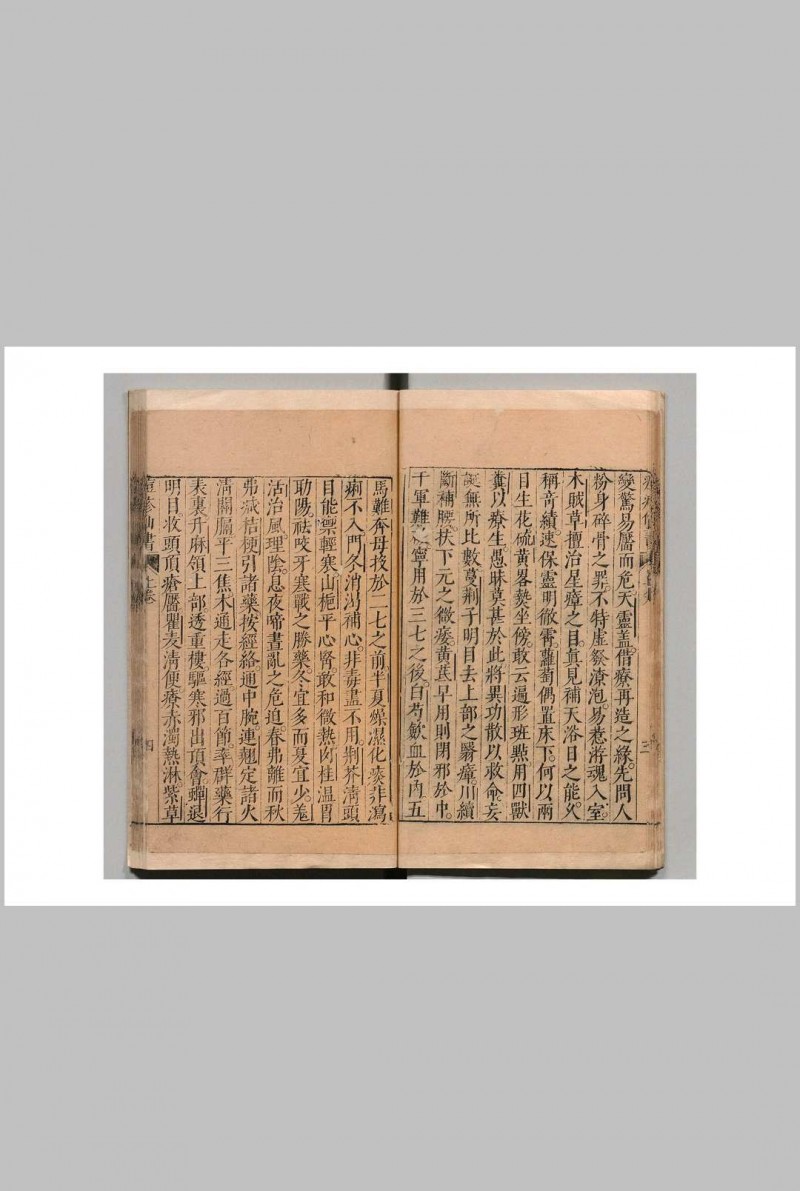 變驚易靨而危天靈蓋借療再造之緣。先問人
粉身碎骨之罪。不特虛祭潦泡。易惹游魂入室。
木賊草擅治星瘴之目。真見補天浴日之能。
稱竒績速保靈明徹霄。蘿蔔偶置床下。何以兩
目生花。硫黄畧𤎅坐傍。敢云遍形班㸃用四獸
糞以療生。愚昧莫甚於此。將異功散以救命。妄
誕無所比數。蔓荆子明目去上部之翳瘴。川續
斷補腰。扶下元之微痿。黄芪早用則閉邪於中。
千軍難 寧用於三七之後。白芍斂血於内。五
馬難奔。毋投於二七之前。半夏燥濕化痰。非瀉
痢不入門。冬消渴補心。非毒盡不用。荆芥清頭
目能禦輕寒。山梔平心腎敢和微熱。肉桂温胃
助陽。祛咬牙寒戰之勝藥。冬宜多而夏宜少。羗
活治風。理陰。息夜啼晝亂之危迫。春弗離而秋
弗 桔梗引諸藥按經絡通中腕。連翹定諸火
清關膈平三焦。木通走各經過百節。率群藥行
表裏。升麻領上部透重樓。驅寒邪出頂會。蟬退
明目。收頭頂瘡靨。瞿麦清便。療赤濁熱淋。紫草
痘疹仙書 上卷 四
三